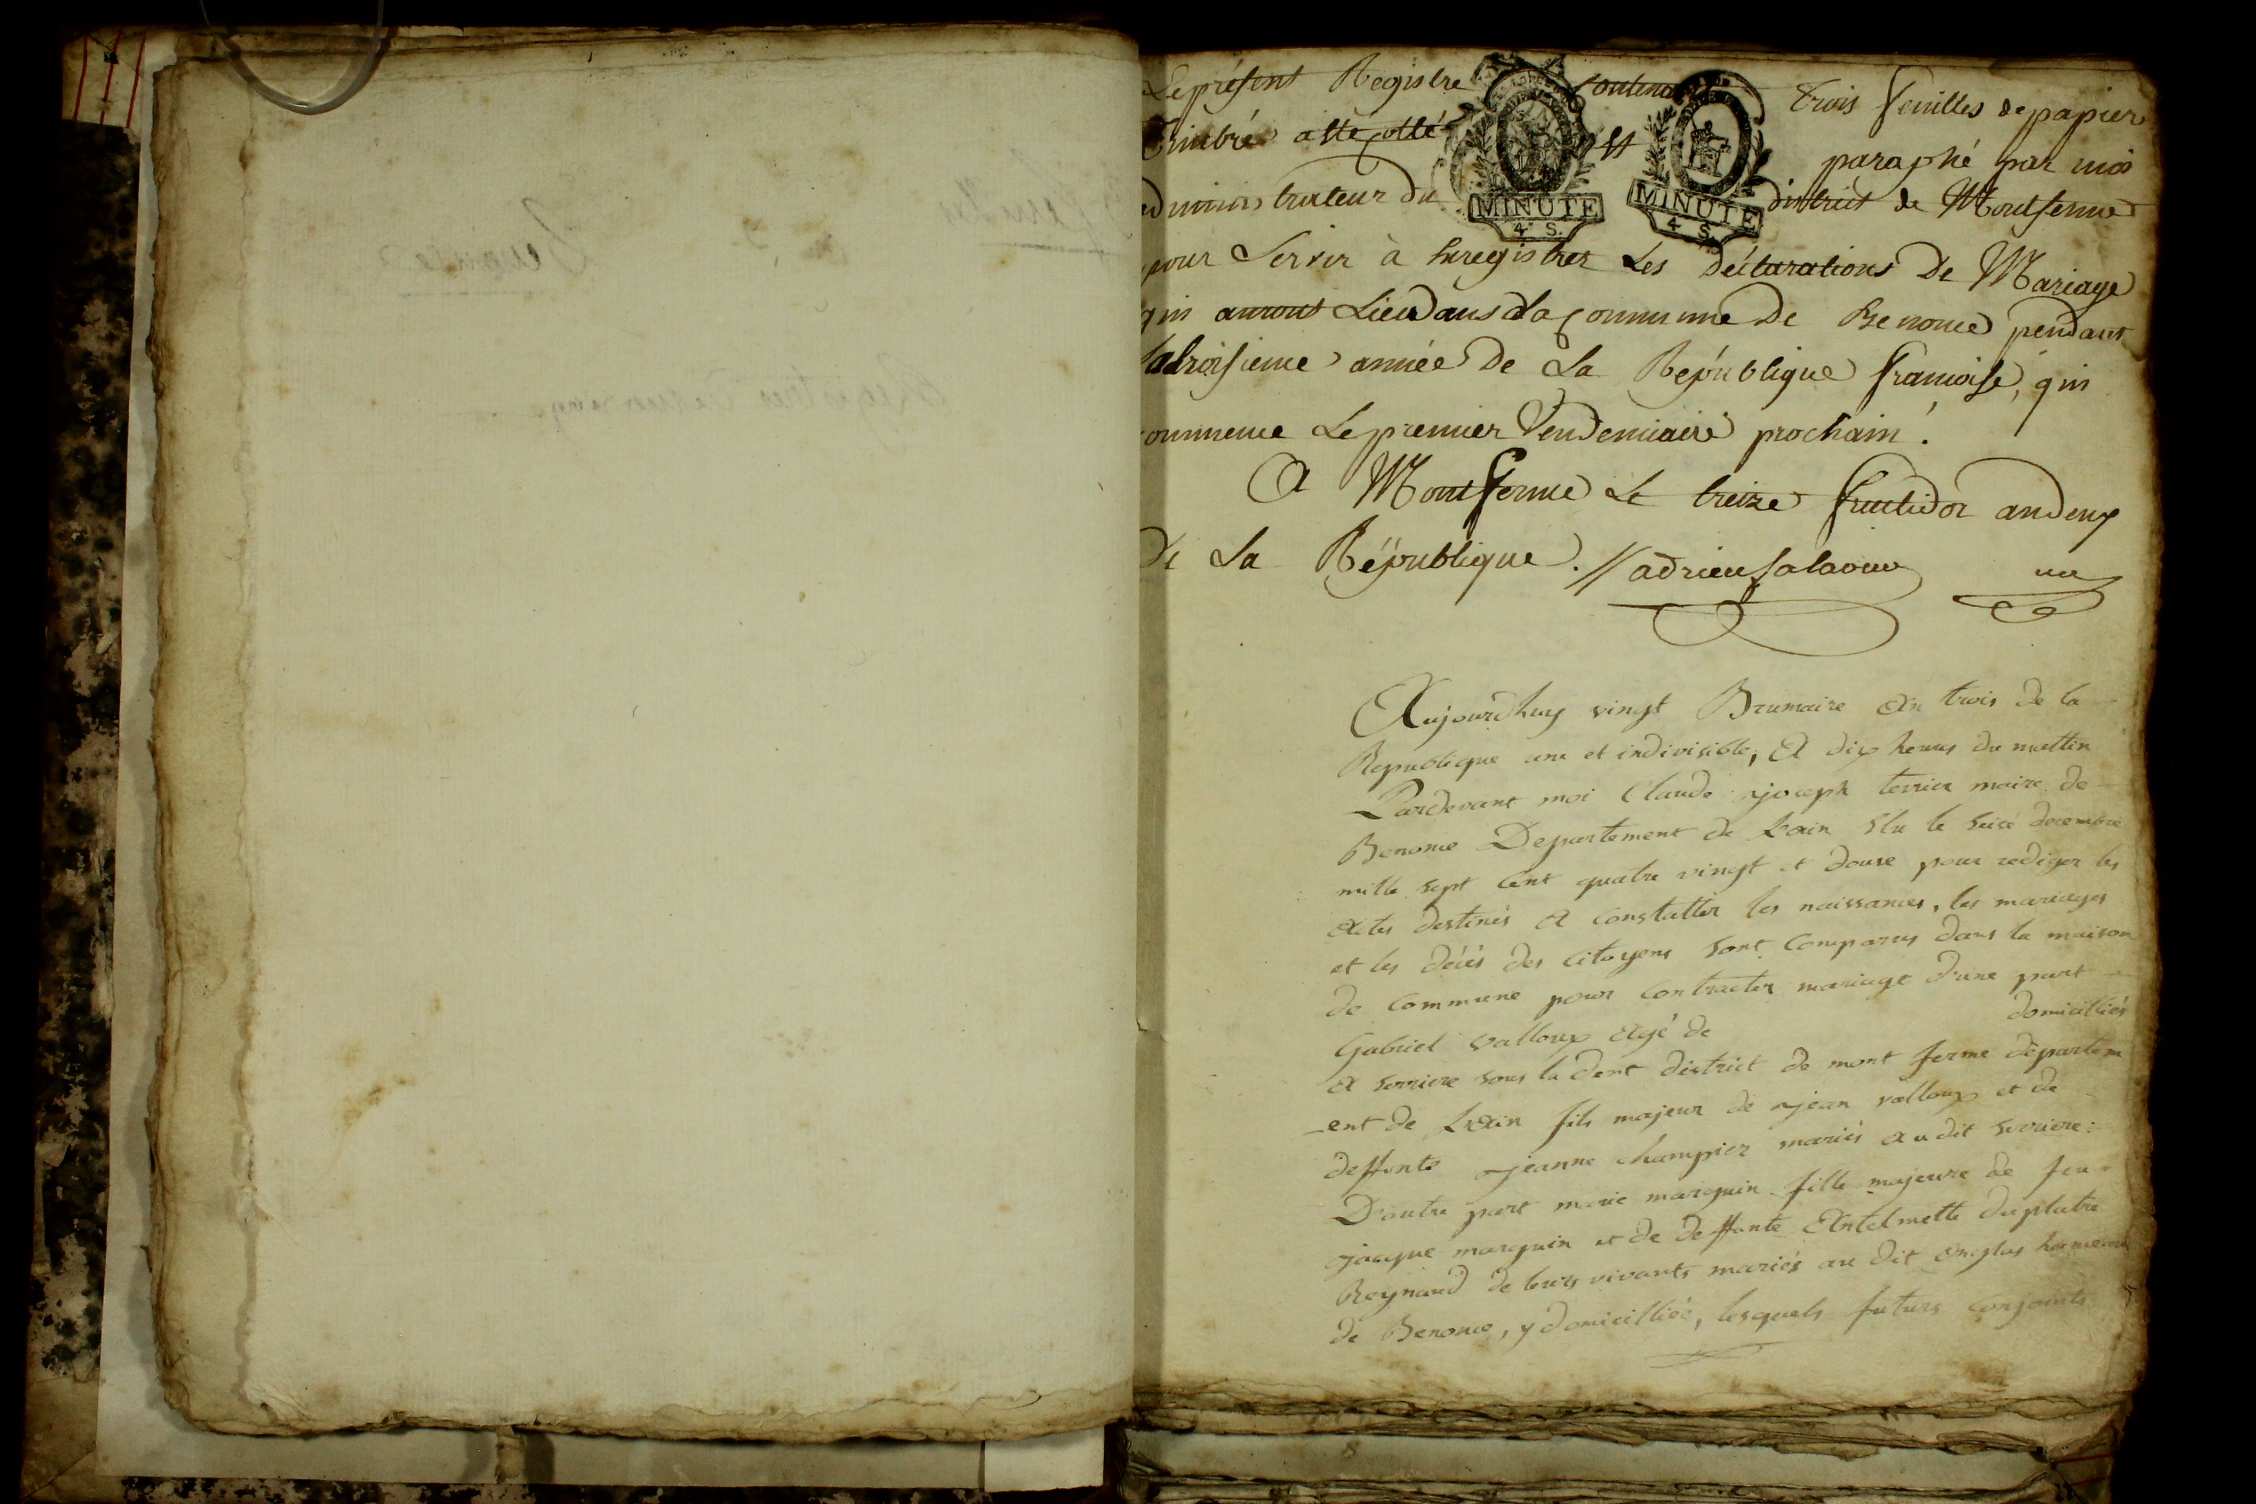 Le présent Registre contenant trois feuilles de papier
Timbré a été cotté et paraphé par moi
administrateur du district de Montferme
MINUTE
4 S.
MINUTE
4 S.
pour servir à Enregistrer Les déclarations De Mariage
qui auront Lieu dans La Commune De Benonce pendant
la troisieme année De La République francoise, qui
commence Le premier Vendemiaire prochain.
A Montferme Le treize fructidor an deux
De La République. adrien salaoux
un
Aujourdhuy vingt Brumaire An trois de la
Republique une et indivisible, A dix heures du mattin
Pardevant moi Claude joseph terrier maire de
Benonce Departement de Lain Elu le seize decembre
mille sept cent quatre vingt et douse pour rediger les
Actes destinés A Constatter les naissances, les mariages
et les décés des Citoyens sont Comparus dans la maison
de Commune pour Contracter mariage d'une part
Gabriel valloux Agé de domicilliés
A serriere sous la dent district de mont ferme départem
-ent de LAin fils majeur de jean valloux et de
deffonte jeanne champier mariés Au dit serriere:
D'autre part marie marquin fille majeure de feu
jacque marquin et de deffonte Antelmette Duplatre
Reynaud de leurs vivants mariés au dit hameau
de Benonce, y domicilliée, lesquels futurs Conjoints